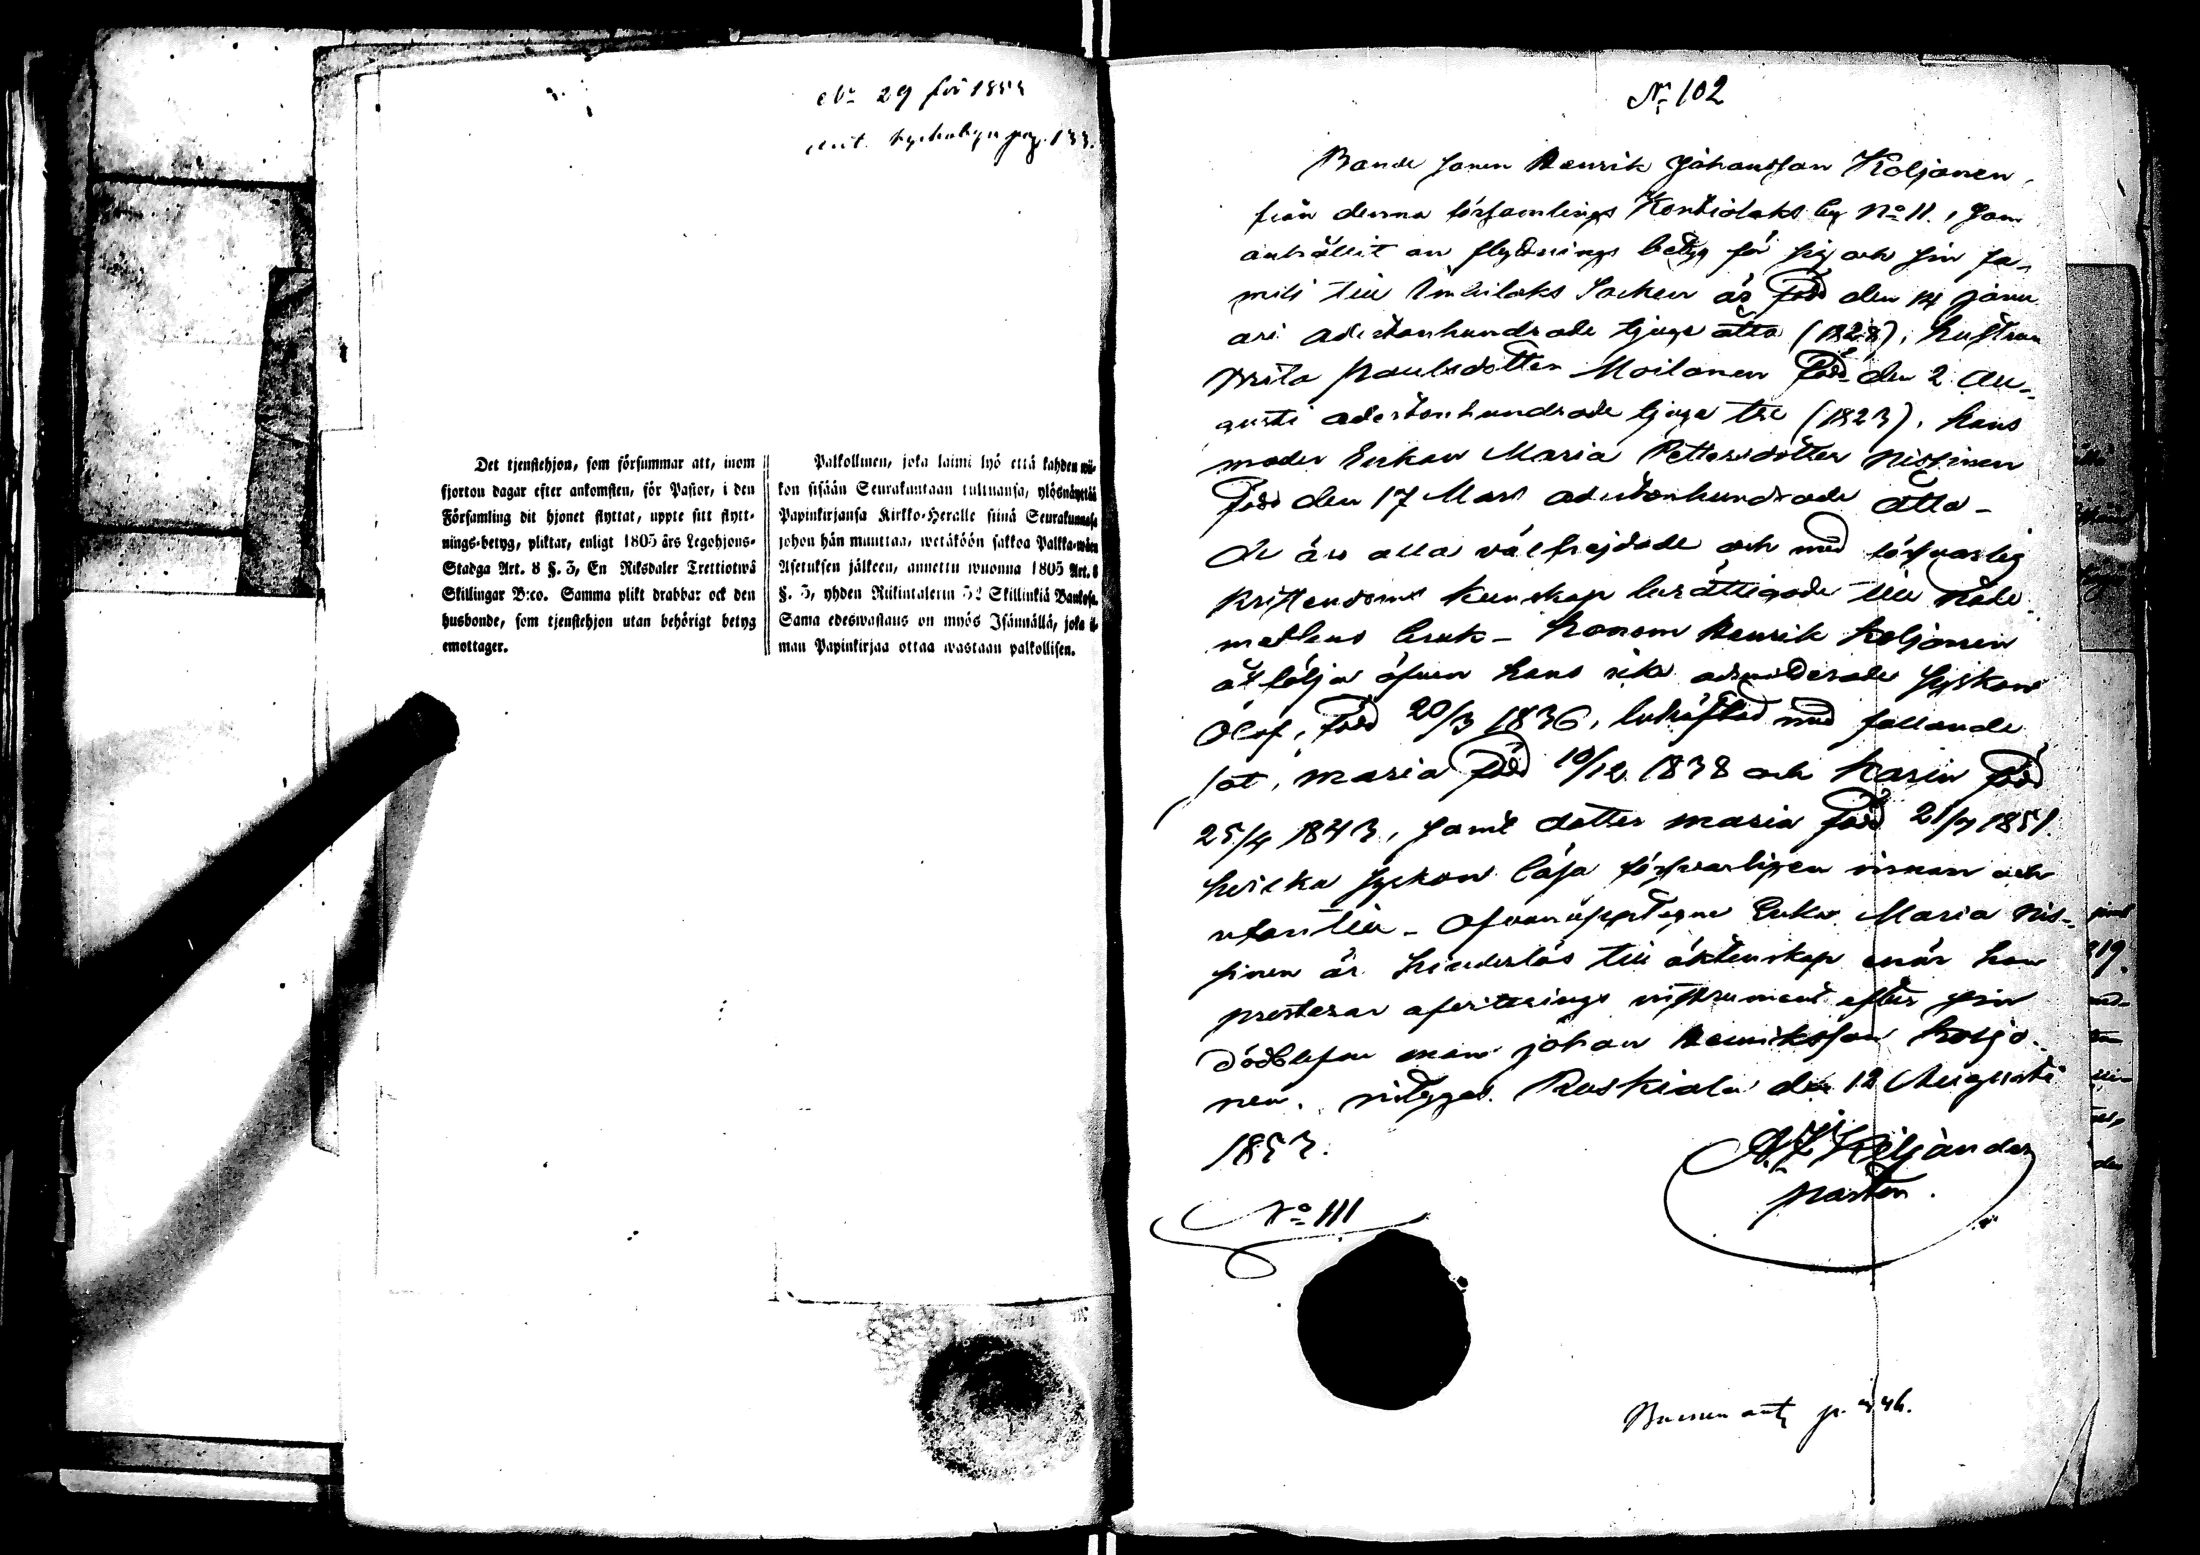 No 29 för 1853
Det tjenstehjon, som försummar att, inom
fjorton dagar efter ankomsten, för Pastor, i den
Församling dit hjonet flyttat, uppte sitt flytt-
nings-betyg, pliktar, enligt 1805 års Legohjons-
Stadga Art. 8 §. 3, En Riksdaler Trettiotwå
Skillingar B:co. Samma plikt drabbar ock den
husbonde, som tjenstehjon utan behörigt betyg
emottager.
Palkollinen, joka laimi lyö että kahden wii-
kon sisään Seurakuntaan tultuansa, ylösnäyttää
Papinkirjansa Kirkko-Heralle siinä Seurakunnassa
johon hän muuttaa, wetäköön sakkoa Palkka-wäen
Asetuksen jälkeen, annettu wuonna 1805 Art. 8
§. 3, yhden Riikintalerin 32 Skillinkiä Bankosa.
Sama edeswastaus on myös Isännällä, joka il-
man Papinkirjaa ottaa wastaan palkollisen.
No 102
Bonde sonen Henrik Johansson Koljonen,
från denna församlings Kontiolaks by No 11, som
anhållit om flyttnings betyg för sig och sin fa-
milj till Libelits Socken är född den 14 Janu
ari adertonhundrade tjugo åtta (1828), hustrun
Brita Paulsdotter Moilanen född den 2 Au-
gusti adertonhundrade tjugo tre (1823), hans
moder Enkan Maria Pettersdotter Nissinen
född den 17 Mars adertonhundrade åtta -
De äro alla välfrejdade och med försvarlig
Kristendoms kunskap berättigade till Natt-
wardens bruk - Honom Henrik Koljonen
åtfölja äfven hans icke admitterade syskon
Olof, född 20/3 1836, behäftad med fallande
sot, Maria född 10/12 1838 och Karin född
25/4 1843, samt dotter Maria född 21/7 1851
hvilka syskon läsa försvarligen innan och
utantill - Ofvanupptagne Enka Maria Nis-
sinen är hinderlös till äktenskap enär hon
presterar afvittrings instrument efter sin
dödblefne man Johan Henriksson Koljo-
nen. intygas. Ruskiala den 12 Augusti
1853.
A. J. Kiljander
pastor.
No 111